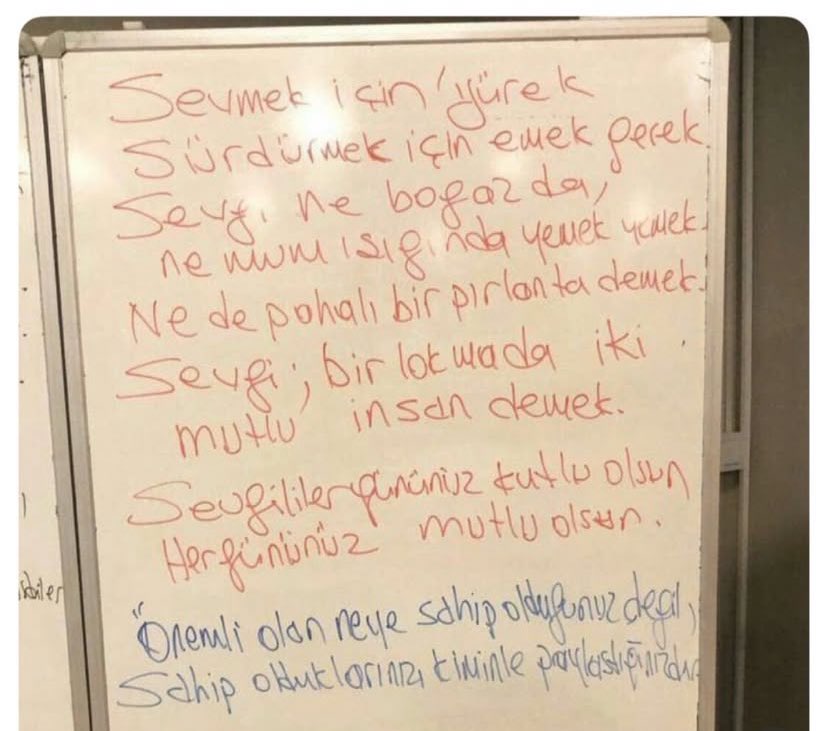 Sevmek için yürek
Sürdürmek için emek gerek.
Sevgi ne boğazda,
ne mum ışığında yemek yemek.
Ne de pahalı bir pırlanta demek.
Sevgi; bir lokmada iki
mutlu insan demek.
Sevgililer gününüz kutlu olsun
Her gününüz mutlu olsun.
"Önemli olan neye sahip olduğunuz değil,
Sahip olduklarınızı kiminle paylaştığınızdır.